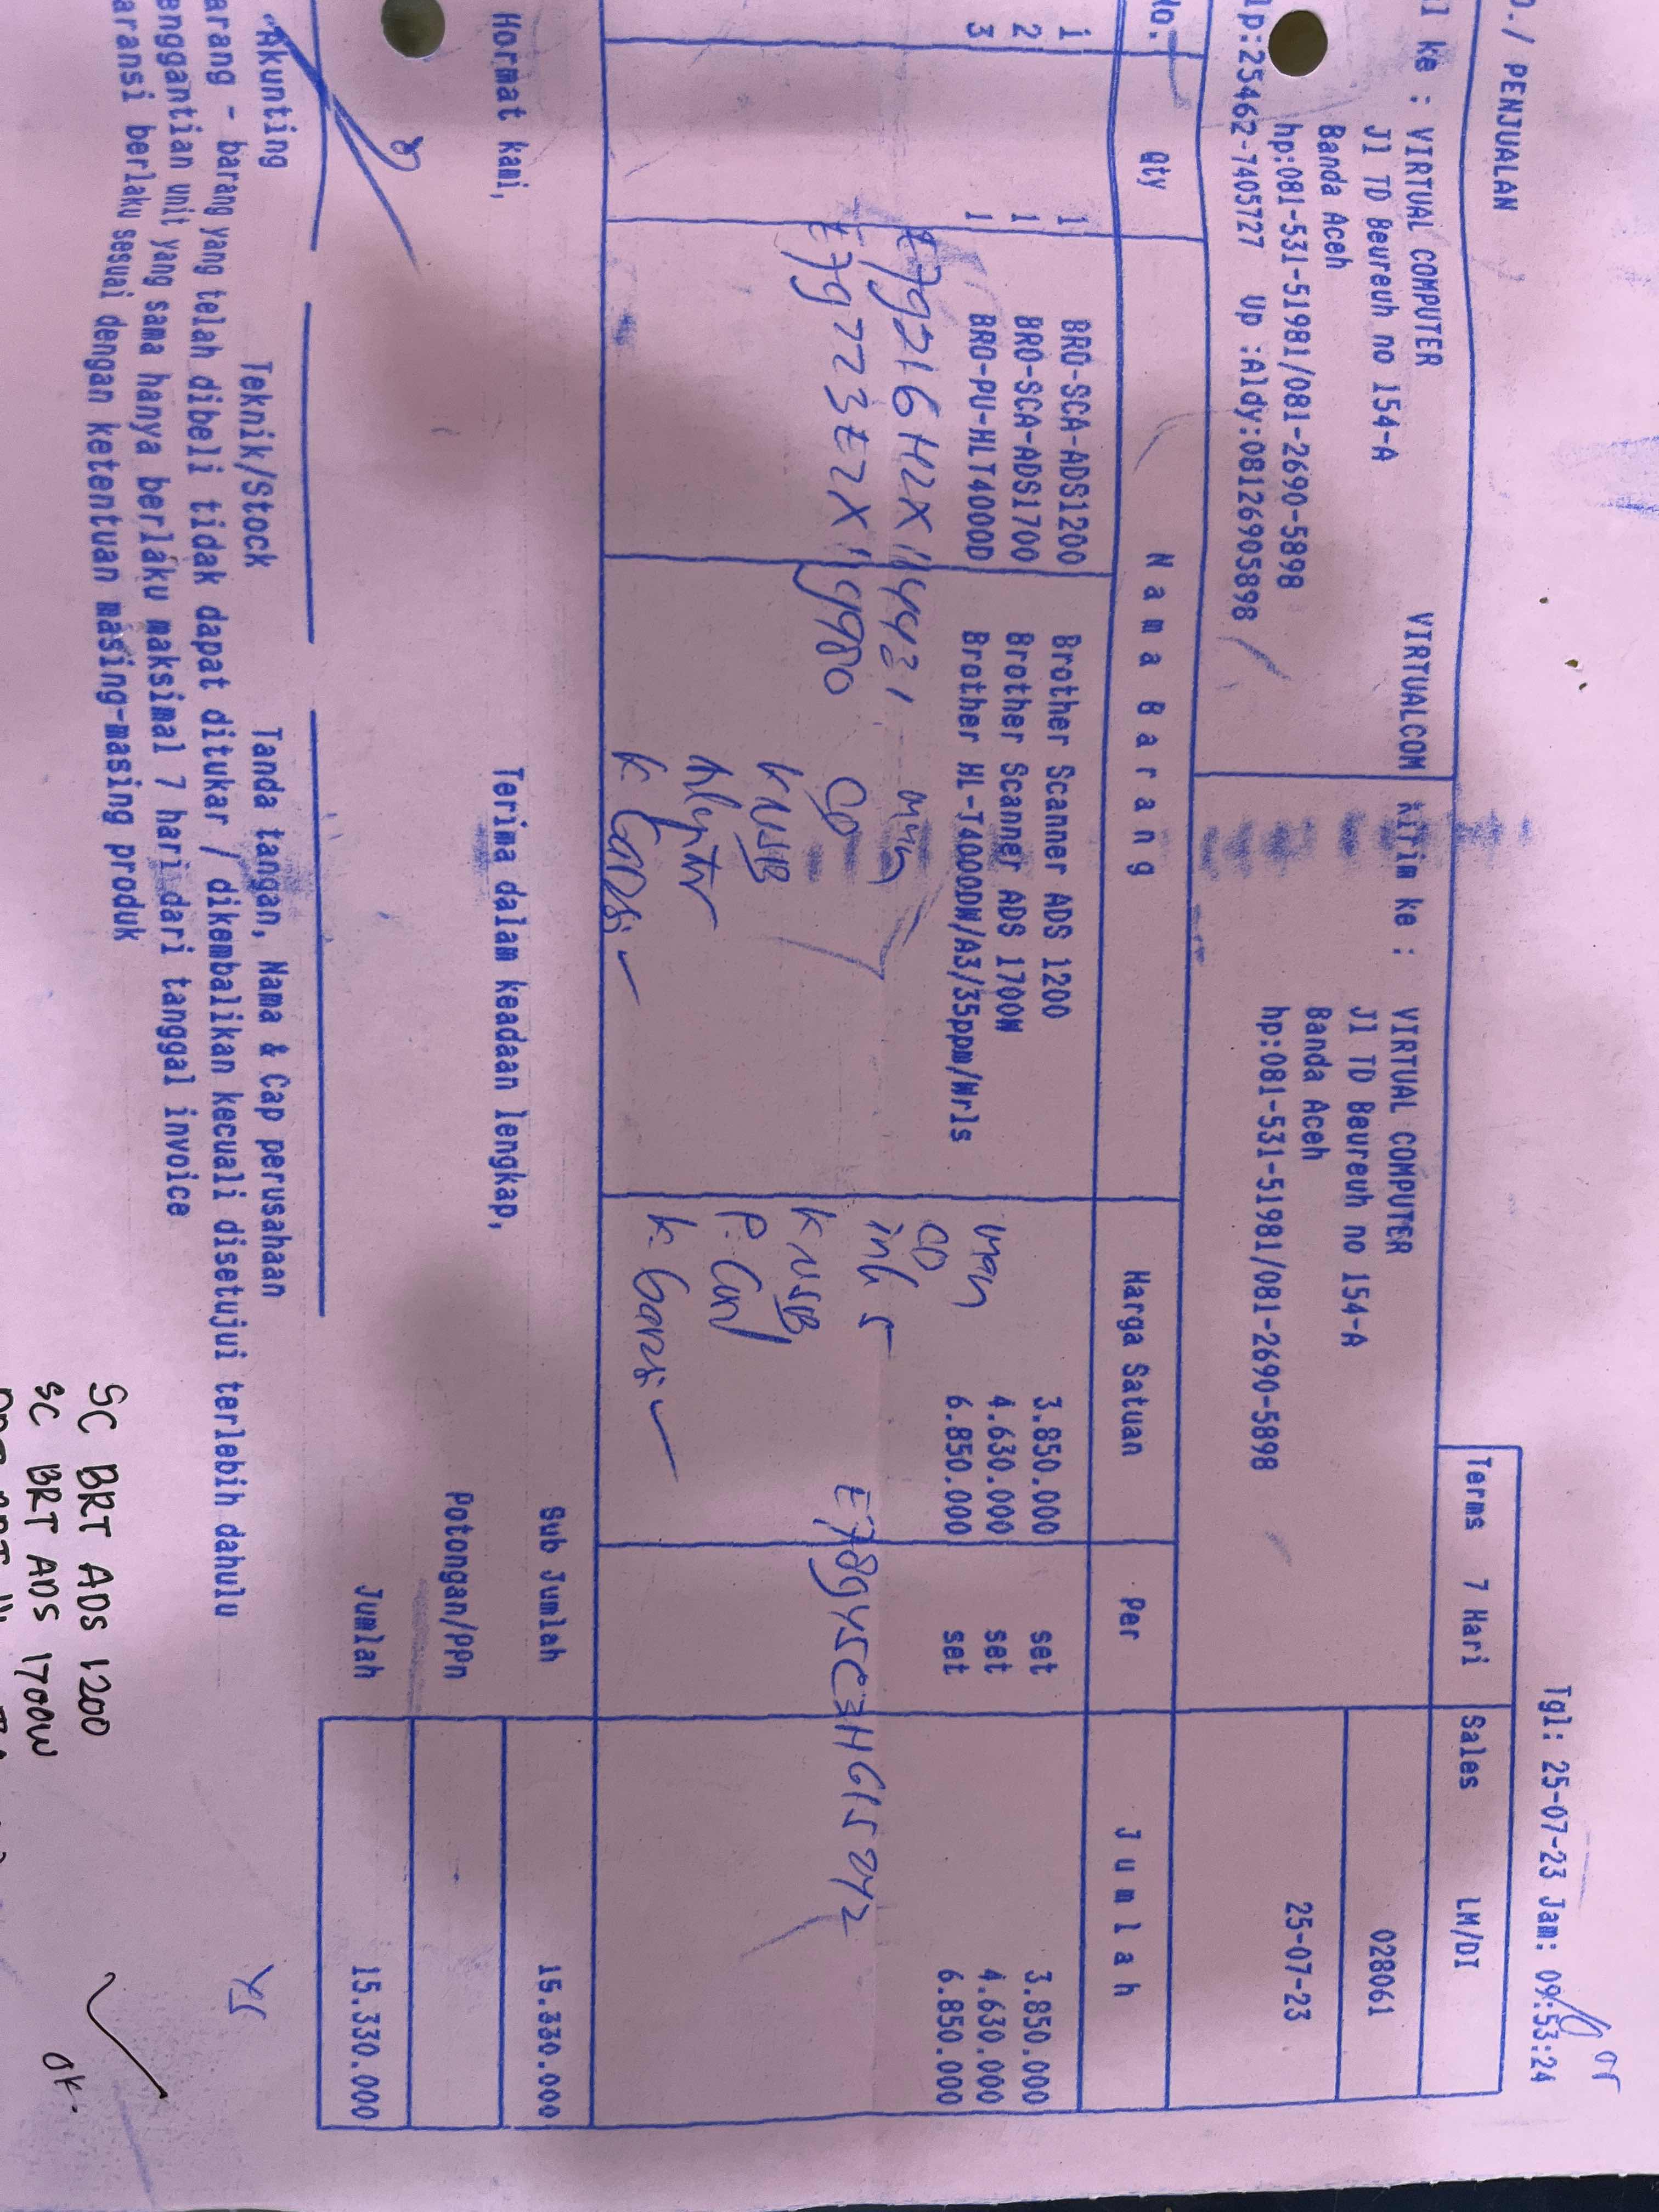 PENJUALAN
Tgl: 25-07-23 Jam: 09:53:24
ke : VIRTUAL COMPUTER VIRTUALCOM
Jl TD Beureuh no 154-A
Banda Aceh
hp:081-531-51981/081-2690-5898
lp:25462-7405727 Up :Aldy:08126905898
kirim ke : VIRTUAL COMPUTER
Jl TD Beureuh no 154-A
Banda Aceh
hp:081-531-51981/081-2690-5898
Terms 7 Hari Sales LM/DI
028061
25-07-23
No. Qty Nama Barang Harga Satuan Per Jumlah
1 1 BRO-SCA-ADS1200 Brother Scanner ADS 1200 3.850.000 set 3.850.000
2 1 BRO-SCA-ADS1700 Brother Scanner ADS 1700W 4.630.000 set 4.630.000
3 1 BRO-PU-HLT4000D Brother HL-T4000DW/A3/35ppm/Wrls 6.850.000 set 6.850.000
CD
K USB
K. Garsi
man
CD
ink 5
K USB
K. Garansi
Hormat kami, Terima dalam keadaan lengkap,
Sub Jumlah 15.330.000
Potongan/PPn
Jumlah 15.330.000
Akunting Teknik/Stock Tanda tangan, Nama & Cap perusahaan
arang - barang yang telah dibeli tidak dapat ditukar / dikembalikan kecuali disetujui terlebih dahulu
enggantian unit yang sama hanya berlaku maksimal 7 hari dari tanggal invoice
aransi berlaku sesuai dengan ketentuan masing-masing produk
SC BRT ADS 1200
SC BRT ADS 1700W
OK.